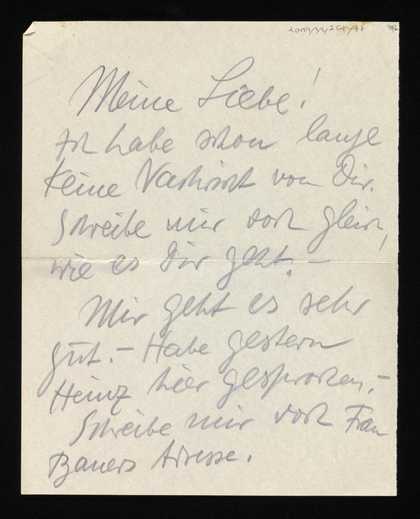 Meine Liebe!
Ich habe schon lange
keine Nachricht von Dir.
Schreibe mir doch gleich,
wie es Dir geht. –
Mir geht es sehr
gut. – Habe gestern
Heinz hier gesprochen, –
Schreibe mir doch Frau
Bauers Adresse.